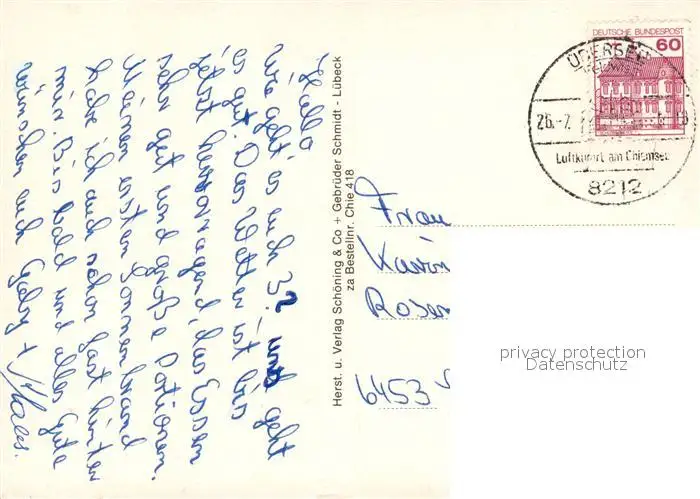 Hallo
Wie geht es euch 3? uns geht
es gut. Das Wetter ist bis
jetzt hervorragend, das Essen
sehr gut und große Portionen.
Meinen ersten Sonnenbrand
habe ich auch schon fast hinter
mir. Bis bald und alles Gute
wünschen euch Gaby +
Herst. u. Verlag Schöning & Co + Gebrüder Schmidt - Lübeck
za Bestellnr. Chie 418
DEUTSCHE BUNDESPOST
60
ÜBERSEE
26.-7.
Luftkurort am Chiemsee
8212
Frau
Karin
Rosen
6453
privacy protection
Datenschutz